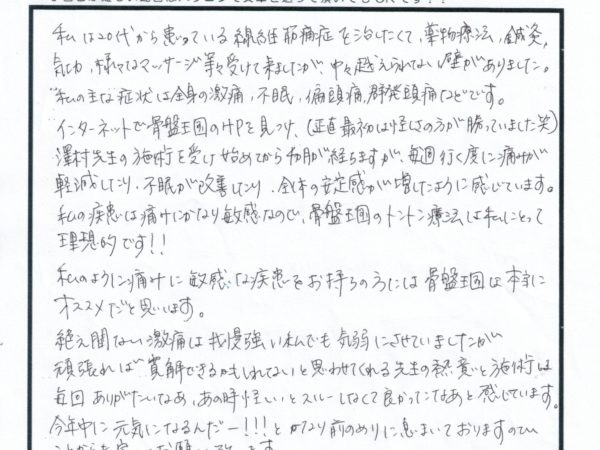 私は20代から患っている線維筋痛症を治したくて、薬物療法、鍼灸、
気功、様々なマッサージ等々受けて来ましたが、中々越えられない壁がありました。
私の主な症状は全身の激痛、不眠、偏頭痛、群発頭痛などです。
インターネットで骨盤王国のHPを見つけ、(正直最初は怪しさの方が勝っていました笑)
澤村先生の施術を受け始めてから 月が経ちますが、毎週行く度に痛みが
軽減したり、不眠が改善したり、全体の安定感が増したように感じています。
私の疾患は痛みにかなり敏感なので、骨盤王国のトントン療法は私にとって
理想的です!!
私のように痛みに敏感な疾患をお持ちの方には骨盤王国は本当に
オススメだと思います。
絶え間ない激痛は我慢強い私でも気弱にさせていましたが
頑張れば寛解できるかもしれないと思わせてくれる先生の熱意と施術は
毎回ありがたいなあ、あの時怪しいとスルーしなくて良かったなあと感じています。
今年中に元気になるんだー!!!とかなり前のめりに息まいておりますので